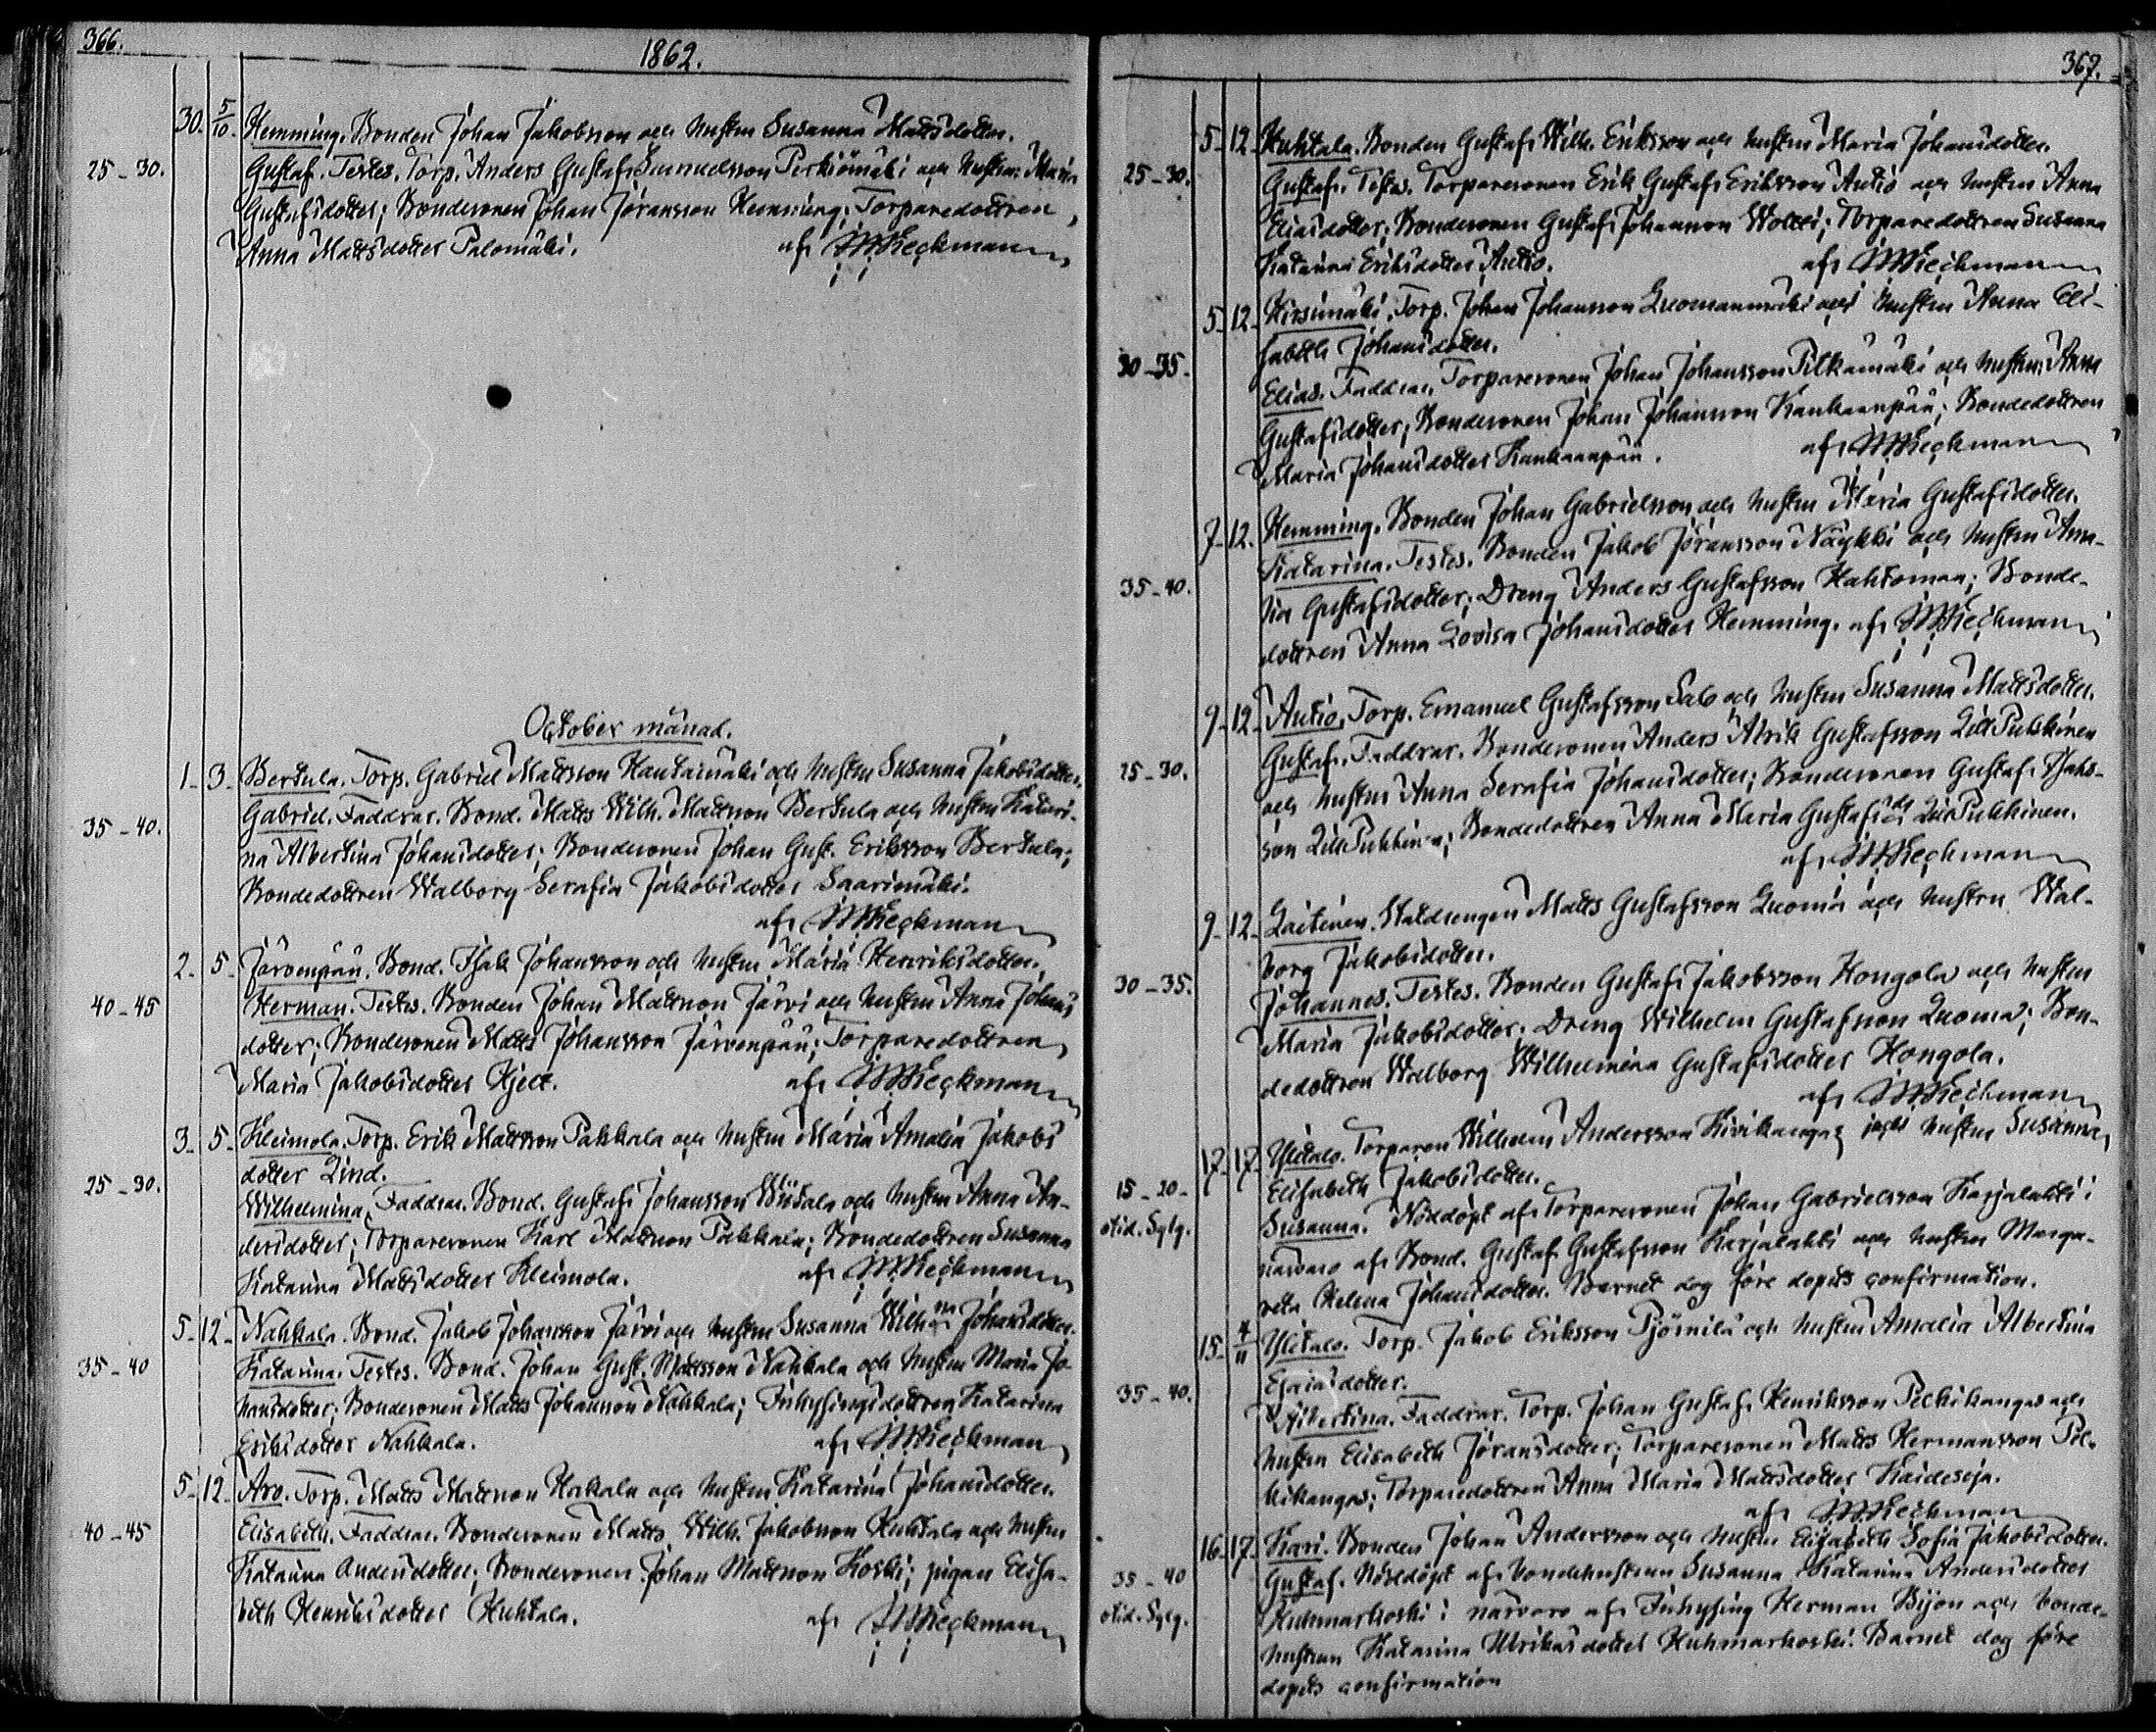 366.
1862.
30. 5/10. Hemming. Bonden Johan Jakobsson och hustru Susanna Mattsdotter.
25-30. Gustaf. Testes. Torp. Anders Gustaf Samuelsson Perkiömäki och hustru Maria
Gustafsdotter; Bondesonen Johan Jöransson Hemming; Torparedottren
Anna Mattsdotter Palomäki. af WHeckman
October månad.
1. 3. Bertula. Torp. Gabriel Mattsson Hautamäki och hustru Susanna Jakobsdotter.
35-40. Gabriel. Faddrar. Bond. Matts Wilh. Mattsson Bertula och hustru Katari-
na Albertina Johansdotter; Bondesonen Johan Gust. Eriksson Bertula;
Bondedottren Walborg Serafia Jakobsdotter Saarimäki.
af WHeckman
2. 5. Järvenpää. Bond. Isak Johansson och hustru Maria Henriksdotter.
40-45 Herman. Testes. Bonden Johan Mattsson Järvi och hustru Anna Johans
dotter; Bondesonen Matts Johansson Järvenpää; Torparedottren
Maria Jakobsdotter Hjelt. af WHeckman
3. 5. Kleimola. Torp. Erik Mattsson Pakkala och hustru Maria Amalia Jakobs
dotter Lind.
25-30. Wilhelmina. Faddrar. Bond. Gustaf Johansson Wiitala och hustru Anna An-
dersdotter; Torparesonen Karl Mattsson Pakkala; Bondedottren Susanna
Katarina Mattsdotter Kleimola. af WHeckman
5. 12. Nahkala. Bond. Jakob Johansson Järvi och hustru Susanna Wilh:na Johansdotter.
35-40 Katarina. Testes. Bond. Johan Gust. Mattsson Nahkala och hustru Maria Jo-
hansdotter; Bondesonen Matts Johansson Nahkala; Inhysingsdottren Katarina
Eriksdotter Nahkala. af WHeckman
5. 12. Aro. Torp. Matts Mattsson Hakala och hustru Katarina Johansdotter.
40-45 Elisabeth. Faddrar. Bondesonen Matts Wilh. Jakobsson Huhtala och hustru
Katarina Andersdotter; Bondesonen Johan Mattsson Koski; pigan Elisa-
beth Henriksdotter Huhtala. af WHeckman
367.
5. 12. Huhtala. Bonden Gustaf Wilh. Eriksson och hustru Maria Johansdotter.
25-30. Gustaf. Testes. Torparesonen Erik Gustaf Eriksson Autio och hustru Anna
Eliasdotter; Bondesonen Gustaf Johansson Woltti; Torparedottren Susanna
Katarina Eriksdotter Autio. af WHeckman
5. 12. Hirsimäki. Torp. Johan Johansson Luomanmäki och hustru Anna Eli-
sabeth Johansdotter.
30-35. Elias. Faddrar. Torparesonen Johan Johansson Pilkamäki och hustru Anna
Gustafsdotter; Bondesonen Johan Johansson Kankaanpää; Bondedottren
Maria Johansdotter Kankaanpää. af WHeckman
7. 12. Hemming. Bonden Johan Gabrielsson och hustru Maria Gustafsdotter.
Katarina. Testes. Bonden Jakob Jöransson Näykki och hustru Ama-
35-40. lia Gustafsdotter; Dreng Anders Gustafsson Hahtomaa; Bonde-
dottren Anna Lovisa Johansdotter Hemming. af WHeckman
9. 12. Autio. Torp. Emanuel Gustafsson Salo och hustru Susanna Mattsdotter.
25-30. Gustaf. Faddrar. Bondesonen Anders Alrik Gustafsson Lill Pukkinen
och hustru Anna Serafia Johansdotter; Bondesonen Gustaf Isaks-
son Lill Pukkinen; Bondedottren Anna Maria Gustafsdr Lill Pukkinen.
af WHeckman
9. 12. Laitinen. Statdrengen Matts Gustafsson Luoma och hustru Wal-
borg Jakobsdotter.
30-35. Johannes. Testes. Bonden Gustaf Jakobsson Hongola och hustru
Maria Jakobsdotter; Dreng Wilhelm Gustafsson Luoma; Bon-
dedottren Walborg Wilhelmina Gustafsdotter Hongola.
af WHeckman
17. 17. Ylitalo. Torparen Wilhelm Andersson Kivikangas och hustru Susanna
Elisabeth Jakobsdotter.
15-20. Susanna. Nöddöpt af Torparesonen Johan Gabrielsson Karjalahti i
otid. Sglg. närvaro af Bond. Gustaf Gustafsson Karjalahti och hustru Marga-
reta Helena Johansdotter. Barnet dog före dopets confirmation.
15. 4/11 Ylitalo. Torp. Jakob Eriksson Pjörnilä och hustru Amalia Albertina
Esaiasdotter.
35-40. Albertina. Faddrar. Torp. Johan Gustaf Henriksson Pickikangas och
hustru Elisabeth Jöransdotter; Torparesonen Matts Hermansson Pic-
kikangas; Torparedottren Anna Maria Mattsdotter Kaidesoja.
af WHeckman
16. 17. Kari. Bonden Johan Andersson och hustru Elisabeth Sofia Jakobsdotter.
35-40 Gustaf. Nöddöpt af bondehustrun Susanna Katarina Andersdotter
otid. Sglg. Kuhmarkoski i närvaro af Inhysing Herman Bijon och bonde-
hustrun Katarina Ulrikasdotter Kuhmarkoski. Barnet dog före
dopets confirmation